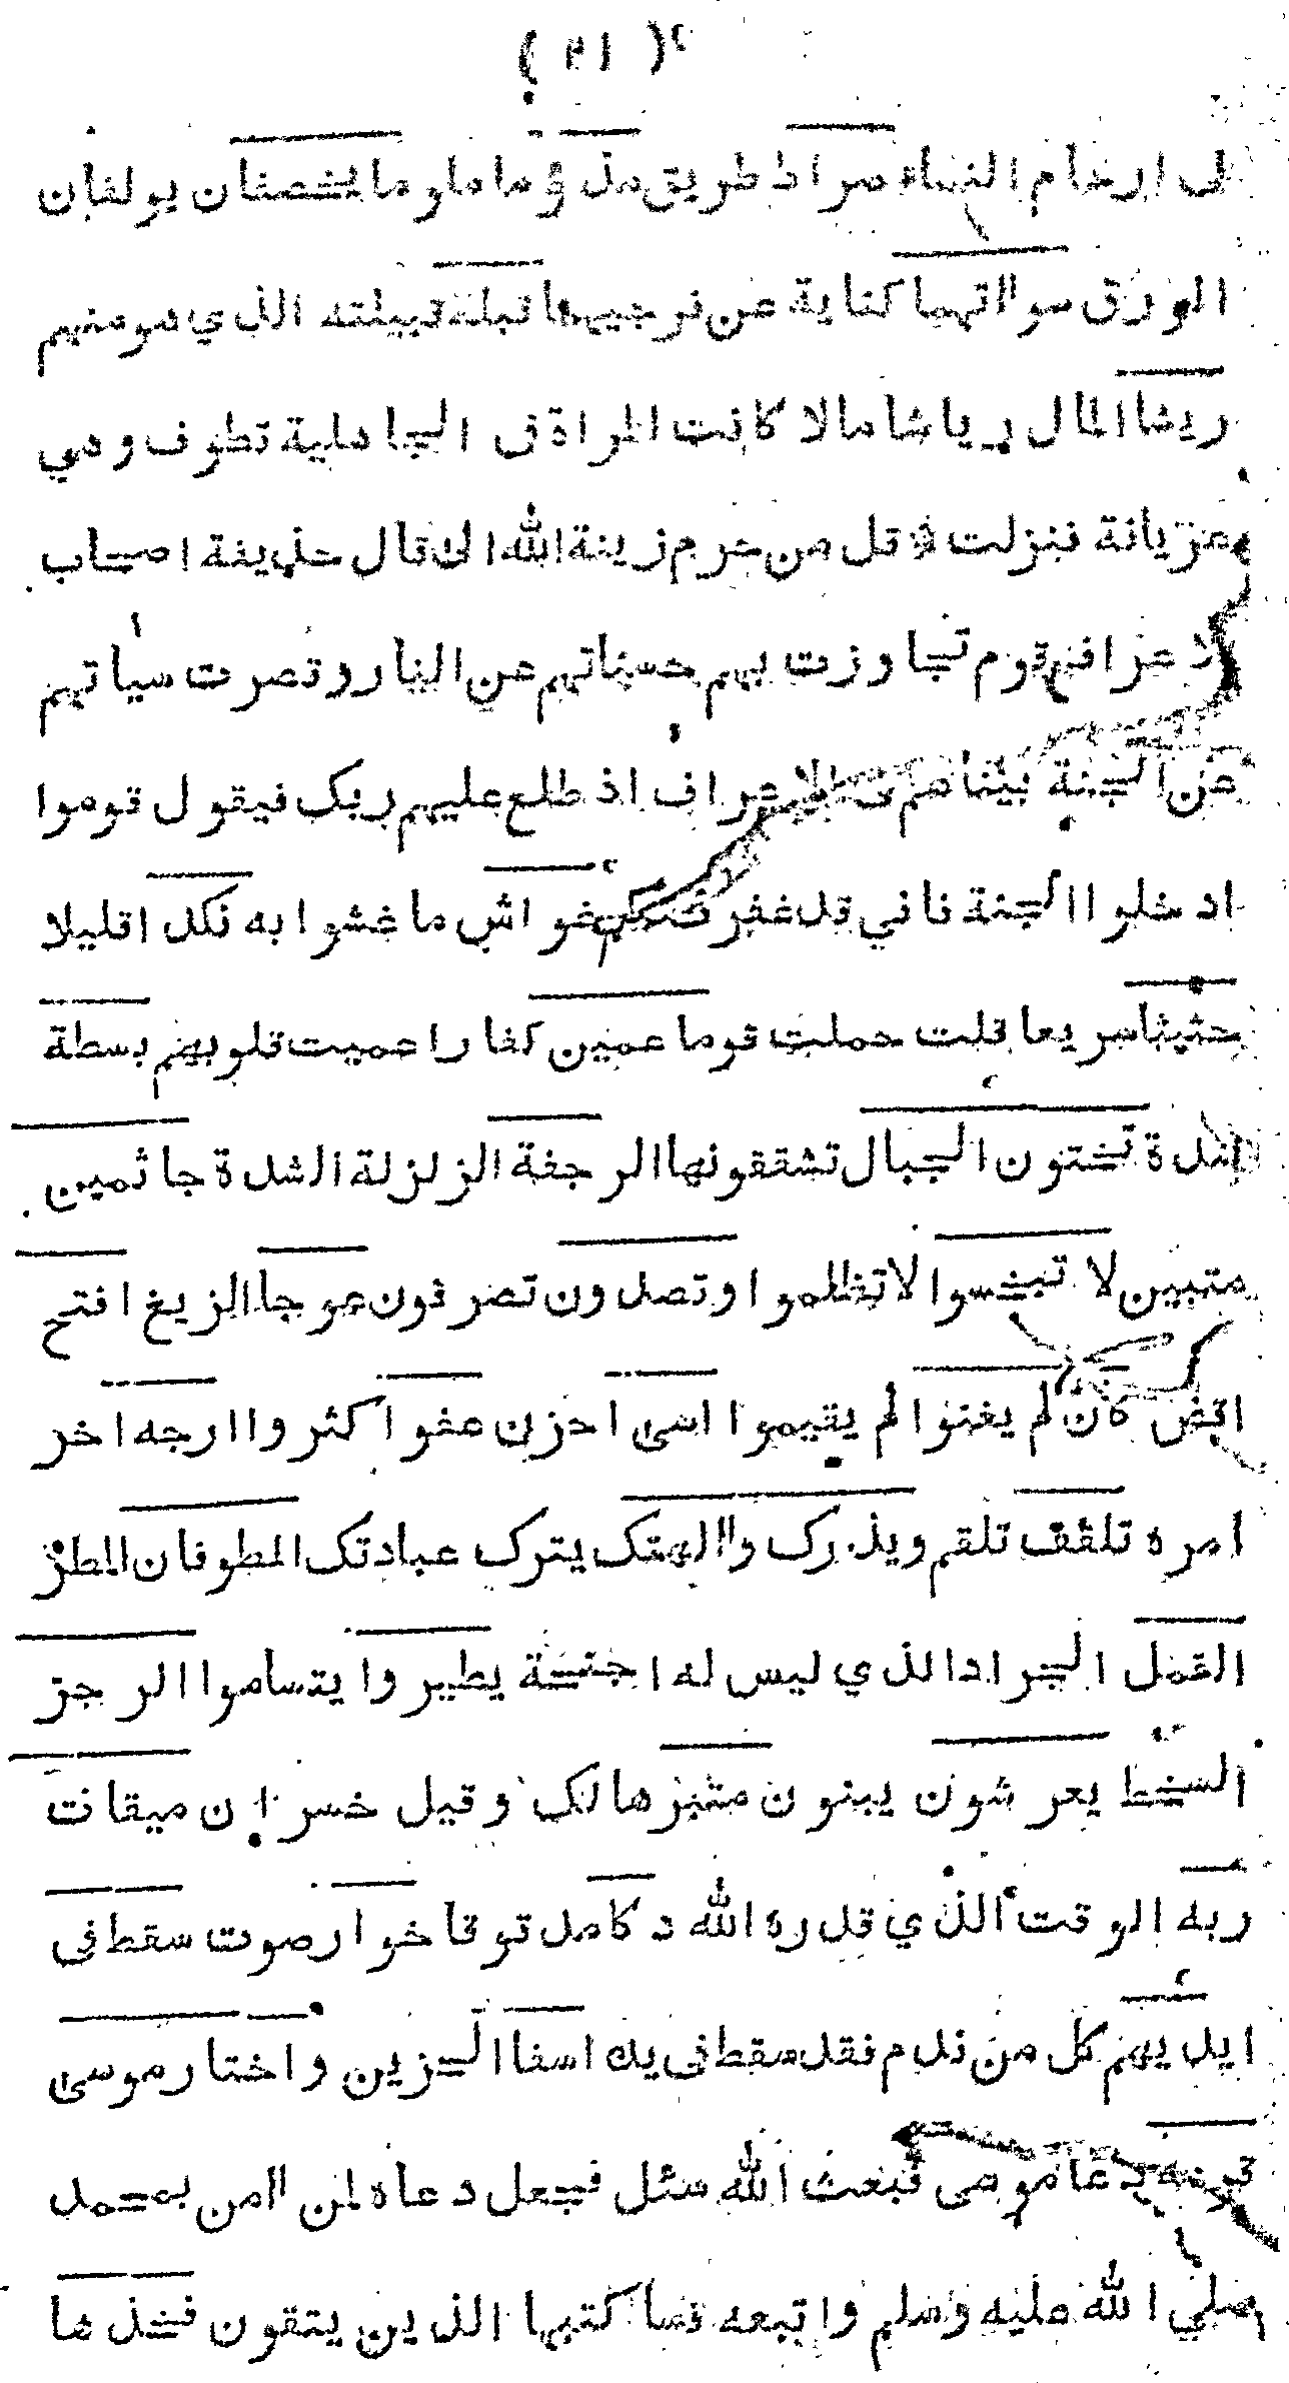 فى ارحام النساء صراط طريق مذؤما ملوما يخصفان يولفان
الورق سوااتهما كناية عن فرجيهما قبلة قبيلته الذي هو منهم
ريشا المال رياشا مالا كانت المراة فى الجاهلية تطوف وهي
عريانة فنزلت قل من حرم زينة الله الخ قال حذيفة اصحاب
الاعراف هم قوم تجاوزت بهم حسناتهم عن النار وقصرت سيأتهم
عن الجنة بينا هم فى الاعراف اذ طلع عليهم ربك فيقول قوموا
ادخلوا الجنة فاني قد غفرت لكم غواش ما غشوا به نكدا قليلا
حثيثا سريعا قلت حملت قوما عمين كفارا عميت قلوبهم بسطة
شدة تنحتون الجبال تشققونها الرجفة الزلزلة الشدة جاثمين
متبين لا تبخسوا لا تظلموا وتصدون تصرفون عوجا الزيغ افتح
اقض كان لم يغنوا لم يقيموا اسى احزن عفوا كثروا ارجه اخر
امره تلقف تلقم ويذرك واالهتك يترك عبادتك الطوفان المطر
القمل الجراد الذي ليس له اجنحة يطير وا يتسأموا الرجز
السخط يعرشون يبنون متبر هالك وقيل خسران ميقات
ربه الوقت الذي قدره الله دكا مد توقا خوار صوت سقط فى
ايديهم كل من ندم فقد سقط فى يده اسفا الحزين واختار موسى
قومه دعا موسى فبعث الله مثل فجعل دعاه لمن اامن بمحمد
صلي الله عليه وسلم واتبعه فسا كتبها الذين يتقون فخذها